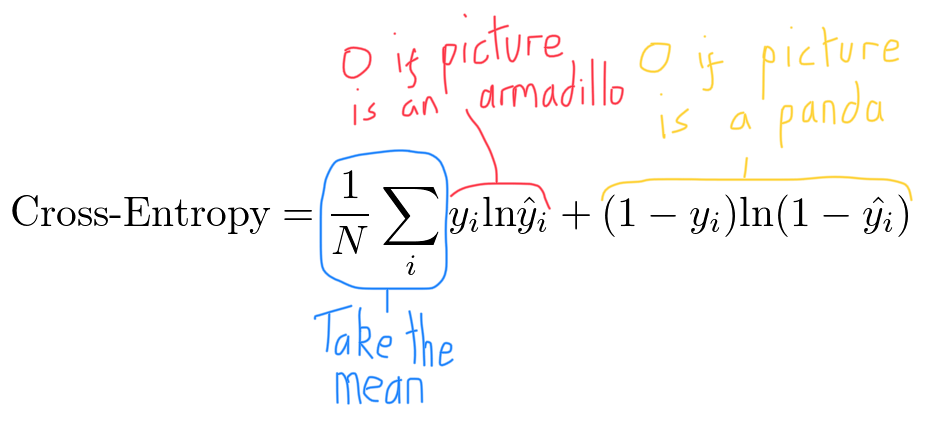 0 if picture
is an armadillo
0 if picture
is a panda
Cross-Entropy = \frac{1}{N} \sum_{i} y_i ln ŷ_i + (1 − y_i)ln(1 − ŷ_i)
Take the
mean